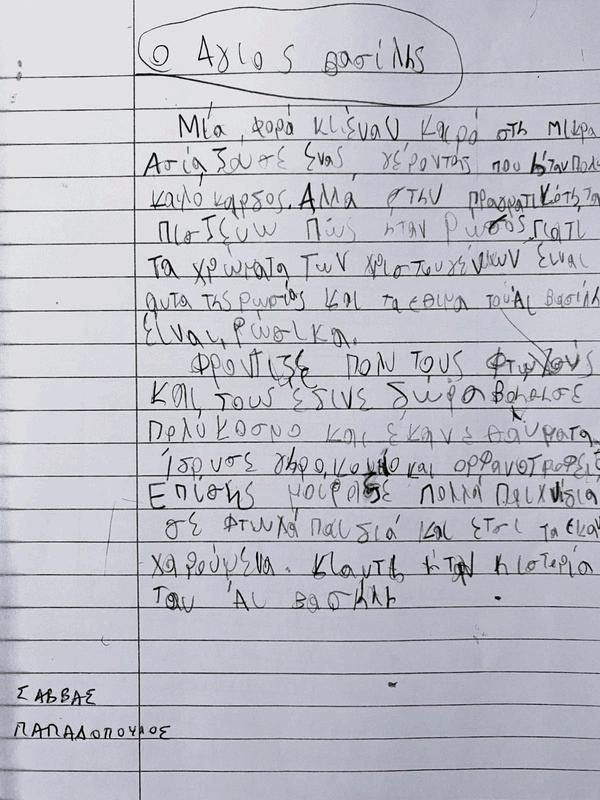 Ο Άγιος Βασίλης
Μία φορά κι έναν καιρό στη Μικρα
Ασία ζουσε ένας γέροντας που ήταν πολυ
καλόκαρδος. Αλλά στην πραγματικότητα
πιστευω πώς ήταν Ρώσος, γιατι
τα χρώματα των χριστουγέννων ειναι
αυτα της ρωσίας και τα εθιμα του Αι Βασίλη
είναι ρώσικα.
Φροντιζε πολυ τους φτωχούς
και τους έδινε δώρα βοηθισε
πολύ κοσμο και έκανε θαύματα
ίδρυσε γηροκομίο και ορφανοτροφείο
Επίσης μοιραζε πολλά παιχνίδια
σε φτωχά παιδιά και ετσι τα εκαν
χαρούμενα. Κι αυτη ήταν η ιστορία
του Άι βασηλη
ΣΑΒΒΑΣ
ΠΑΠΑΔΟΠΟΥΛΟΣ